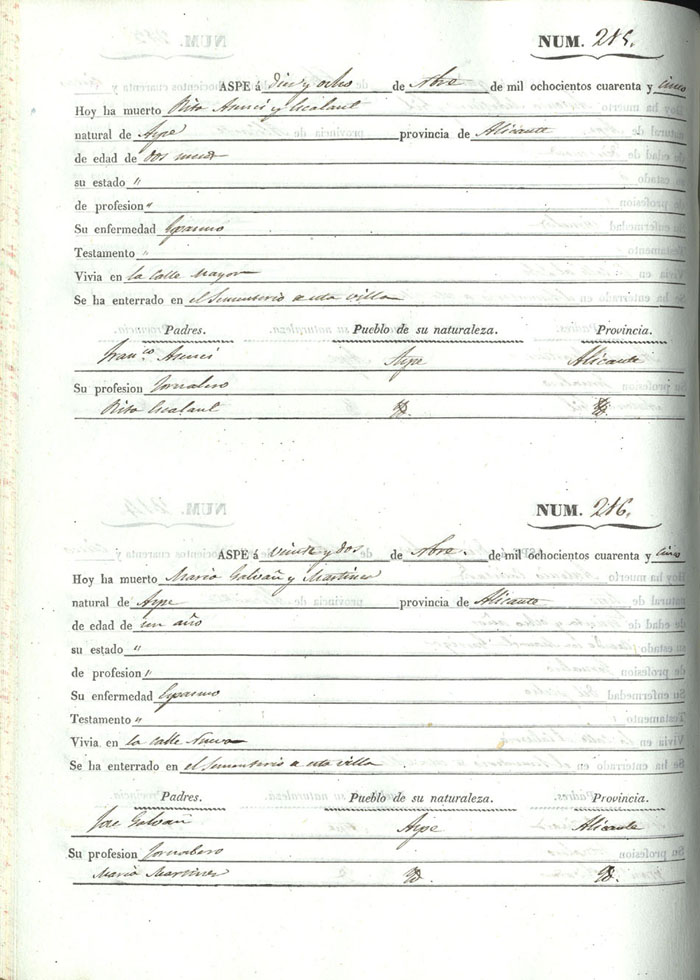 NUM. 215.
ASPE á Diez y ocho de Nbre de mil ochocientos cuarenta y cinco
Hoy ha muerto Rita Asnci y Escalant
natural de Aspe provincia de Alicante
de edad de dos meses
su estado "
de profesion "
Su enfermedad Espasmo
Testamento "
Vivia en la calle Mayor
Se ha enterrado en el Sementerio de esta villa
Padres. Pueblo de su naturaleza. Provincia.
Franco. Aspe Alicante
Su profesion Jornalero
Rita Escalant Yd. Yd.
NUM. 216.
ASPE á veinte y dos de Nbre. de mil ochocientos cuarenta y cinco
Hoy ha muerto Maria Galvañ y Martinez
natural de Aspe provincia de Alicante
de edad de un año
su estado "
de profesion "
Su enfermedad Espasmo
Testamento "
Vivia en la calle Nueva
Se ha enterrado en el Sementerio de esta villa
Padres. Pueblo de su naturaleza. Provincia.
Jose Galvañ Aspe Alicante
Su profesion Jornalero
Maria Martinez Yd. Yd.